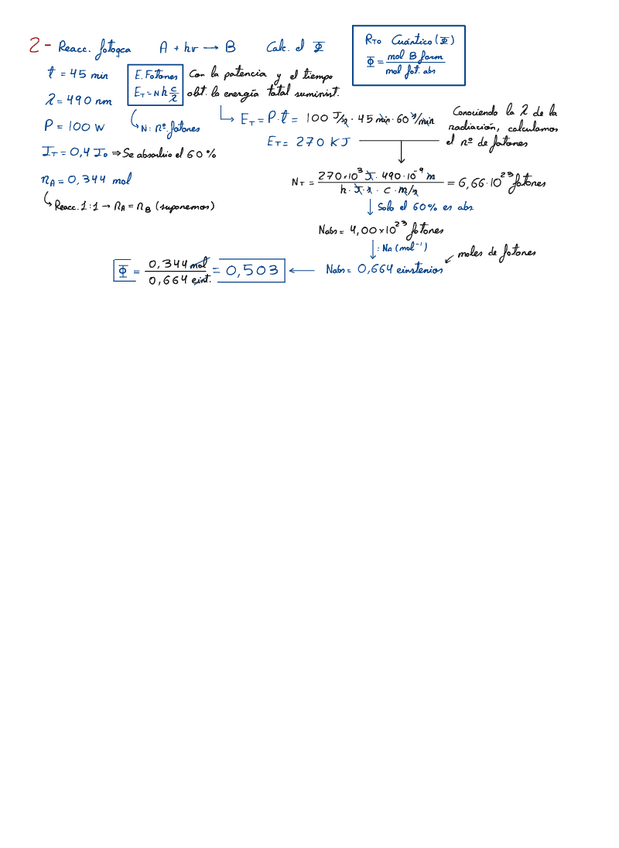 2- Reacc. fotoqca A + hν → B Calc. el Φ
Rto Cuántico (Φ)
Φ = mol B form / mol fot. abs
t = 45 min
λ = 490 nm
P = 100 W
I_T = 0,4 I₀ ⇒ Se absorbió el 60%
n_A = 0,344 mol
↳ Reacc. 1:1 → n_A = n_B (suponemos)
E. Fotones
E_T = N h c/λ
↳ N: nº fotones
Con la potencia y el tiempo
obt. la energía total suminist.
↳ E_T = P·t = 100 J/s · 45 min · 60 s/min
E_T = 270 KJ
Conociendo la λ de la
radiación, calculamos
el nº de fotones
N_T = 270·10³ J · 490·10⁻⁹ m / h · J·s · c · m/s = 6,66·10²³ fotones
↓ Solo el 60% es abs
Nabs = 4,00×10²³ fotones
↓ : NA (mol⁻¹)
moles de fotones
Φ = 0,344 mol / 0,664 eint. = 0,503 ← Nabs = 0,664 einstenios